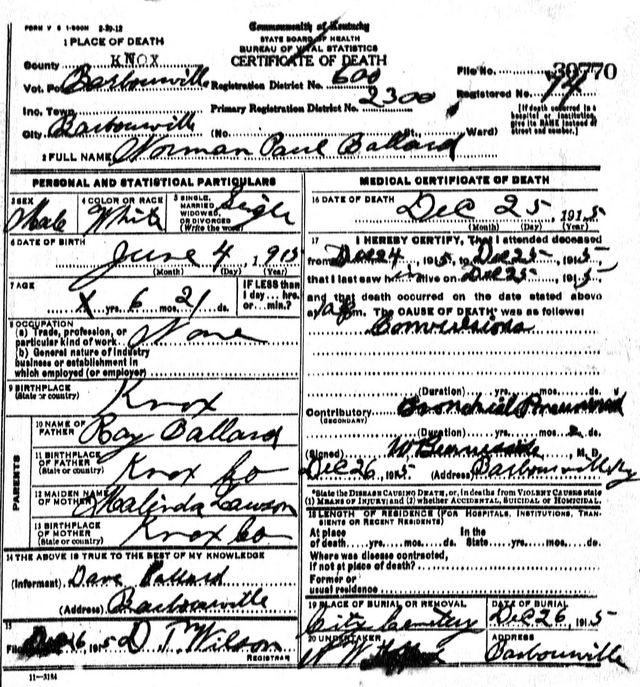 FORM V S 1-500M 2-20-12
Commonwealth of Kentucky
STATE BOARD OF HEALTH
BUREAU OF VITAL STATISTICS
CERTIFICATE OF DEATH
1 PLACE OF DEATH
County KNOX
Vot. Pct. Barbourville Registration District No. 600 File No. 30770
Inc. Town Primary Registration District No. 2300 Registered No. 74
City Barbourville (No. St., Ward) [If death occurred in a hospital or institution, give its NAME instead of street and number.]
2 FULL NAME Norman Paul Ballard
PERSONAL AND STATISTICAL PARTICULARS
3 SEX Male 4 COLOR OR RACE White 5 SINGLE, MARRIED, WIDOWED, OR DIVORCED (Write the word) Sigle
6 DATE OF BIRTH June 4, 1915
(Month) (Day) (Year)
7 AGE yrs. 6 mos. 21 ds. IF LESS than 1 day... hrs. or... min.?
8 OCCUPATION
(a) Trade, profession, or particular kind of work None
(b) General nature of industry
business or establishment in
which employed (or employer)
9 BIRTHPLACE
(State or country) Knox
PARENTS
10 NAME OF FATHER Ray Ballard
11 BIRTHPLACE OF FATHER (State or country) Knox Co
12 MAIDEN NAME OF MOTHER Malinda Lawson
13 BIRTHPLACE OF MOTHER (State or country) Knox Co
14 THE ABOVE IS TRUE TO THE BEST OF MY KNOWLEDGE
(Informant) Dave Ballard
(Address) Barbourville
15
Filed 1915 D T Wilson
REGISTRAR
11-3184
MEDICAL CERTIFICATE OF DEATH
16 DATE OF DEATH Dec 25, 1915
(Month) (Day) (Year)
17 I HEREBY CERTIFY, That I attended deceased
from Dec 24, 1915, to Dec 25, 1915
that I last saw him alive on Dec 25, 1915
and that death occurred on the date stated above
at m. The CAUSE OF DEATH was as follows:
Convulsions
(Duration) yrs. mos. ds.
Contributory Bronchial Pneumonia
(SECONDARY)
(Duration) yrs. mos. ds.
(Signed) M. D.
Dec 26, 1915 (Address) Barbourville Ky
*State the DISEASE CAUSING DEATH, or, in deaths from VIOLENT CAUSES state
(1) MEANS OF INJURY; and (2) whether ACCIDENTAL, SUICIDAL or HOMICIDAL.
18 LENGTH OF RESIDENCE (FOR HOSPITALS, INSTITUTIONS, TRANSIENTS OR RECENT RESIDENTS)
At place of death yrs. mos. ds. In the State yrs. mos. ds.
Where was disease contracted,
if not at place of death?
Former or
usual residence
19 PLACE OF BURIAL OR REMOVAL City Cemetery DATE OF BURIAL Dec 26, 1915
20 UNDERTAKER ADDRESS
Barbourville